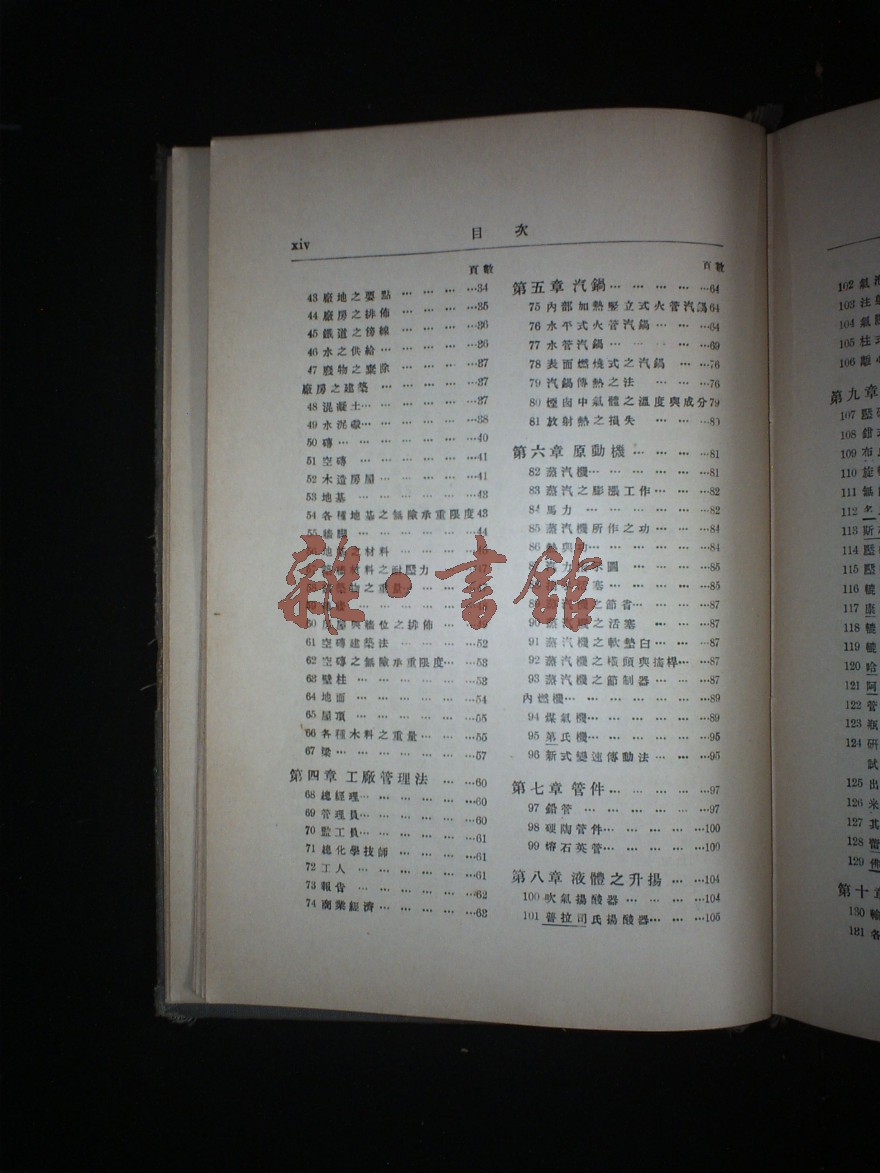 xiv
目 次
頁數
43 廠地之要點 … … … …34
44 廠房之排佈 … … … …35
45 鐵道之傍線 … … … …36
46 水之供給… … … … …36
47 廢物之棄除 … … … …37
廠房之建築 … … … … …37
48 混凝土… … … … … …37
49 水泥 … … … … … …38
50 磚… … … … … … …40
51 空磚 … … … … … …41
52 木造房屋… … … … …41
53 地基 … … … … … …43
54 各種地基之無險承重限度43
55 … … … … … …44
地面之材料 … … …
材料之耐壓力 …47
物之重量… … …
60 與牆位之排佈 …
61 空磚建築法 … … … …52
62 空磚之無險承重限度… …53
63 壁柱 … … … … … …53
64 地面 … … … … … …54
65 屋頂 … … … … … …55
66 各種木料之重量… … …55
67 梁… … … … … … …57
第四章 工廠管理法 … …60
68 總經理… … … … … …60
69 管理員… … … … … …60
70 監工員… … … … … …61
71 總化學技師 … … … …61
72 工人 … … … … … …61
73 報告 … … … … … …62
74 商業經濟… … … … …63
頁數
第五章 汽鍋… … … … …64
75 內部加熱豎立式火管汽鍋64
76 水平式火管汽鍋… … …64
77 水管汽鍋… … … … …69
78 表面燃燒式之汽鍋 … …76
79 汽鍋傳熱之法 … … …76
80 煙囪中氣體之溫度與成分79
81 放射熱之損失 … … …80
第六章 原動機 … … … …81
82 蒸汽機… … … … … …81
83 蒸汽之膨漲工作… … …82
84 馬力… … … … … …82
85 蒸汽機所作之功… … …84
86 熱與功… … … … …84
力 圖 … … …85
塞 … … …85
汽機之節省… … …87
90 蒸汽機之活塞 … … …87
91 蒸汽機之軟墊臼… … …87
92 蒸汽機之 頭與 桿… …87
93 蒸汽機之節制器… … …87
內燃機… … … … … …89
94 煤氣機… … … … … …89
95 第氏機… … … … … …95
96 新式變速傳動法… … …95
第七章 管件… … … … …97
97 鉛管 … … … … … …97
98 硬陶管件… … … … …100
99 熔石英管… … … … …100
第八章 液體之升揚 … …104
100 吹氣揚酸器 … … … …104
101 普拉司氏揚酸器… … …105
雜·書館
102 氣
103 注
104 氣
105 柱
106 離
第九章
107 壓
108 鉗
109 布
110 旋
111 無
112
113 斯
114 壓
115 壓
116
117
118
119
120 哈
121 阿
122 管
123 瓶
124 研
試
125 出
126 米
127 其
128
129 佛
第十章
130 輪
131 各